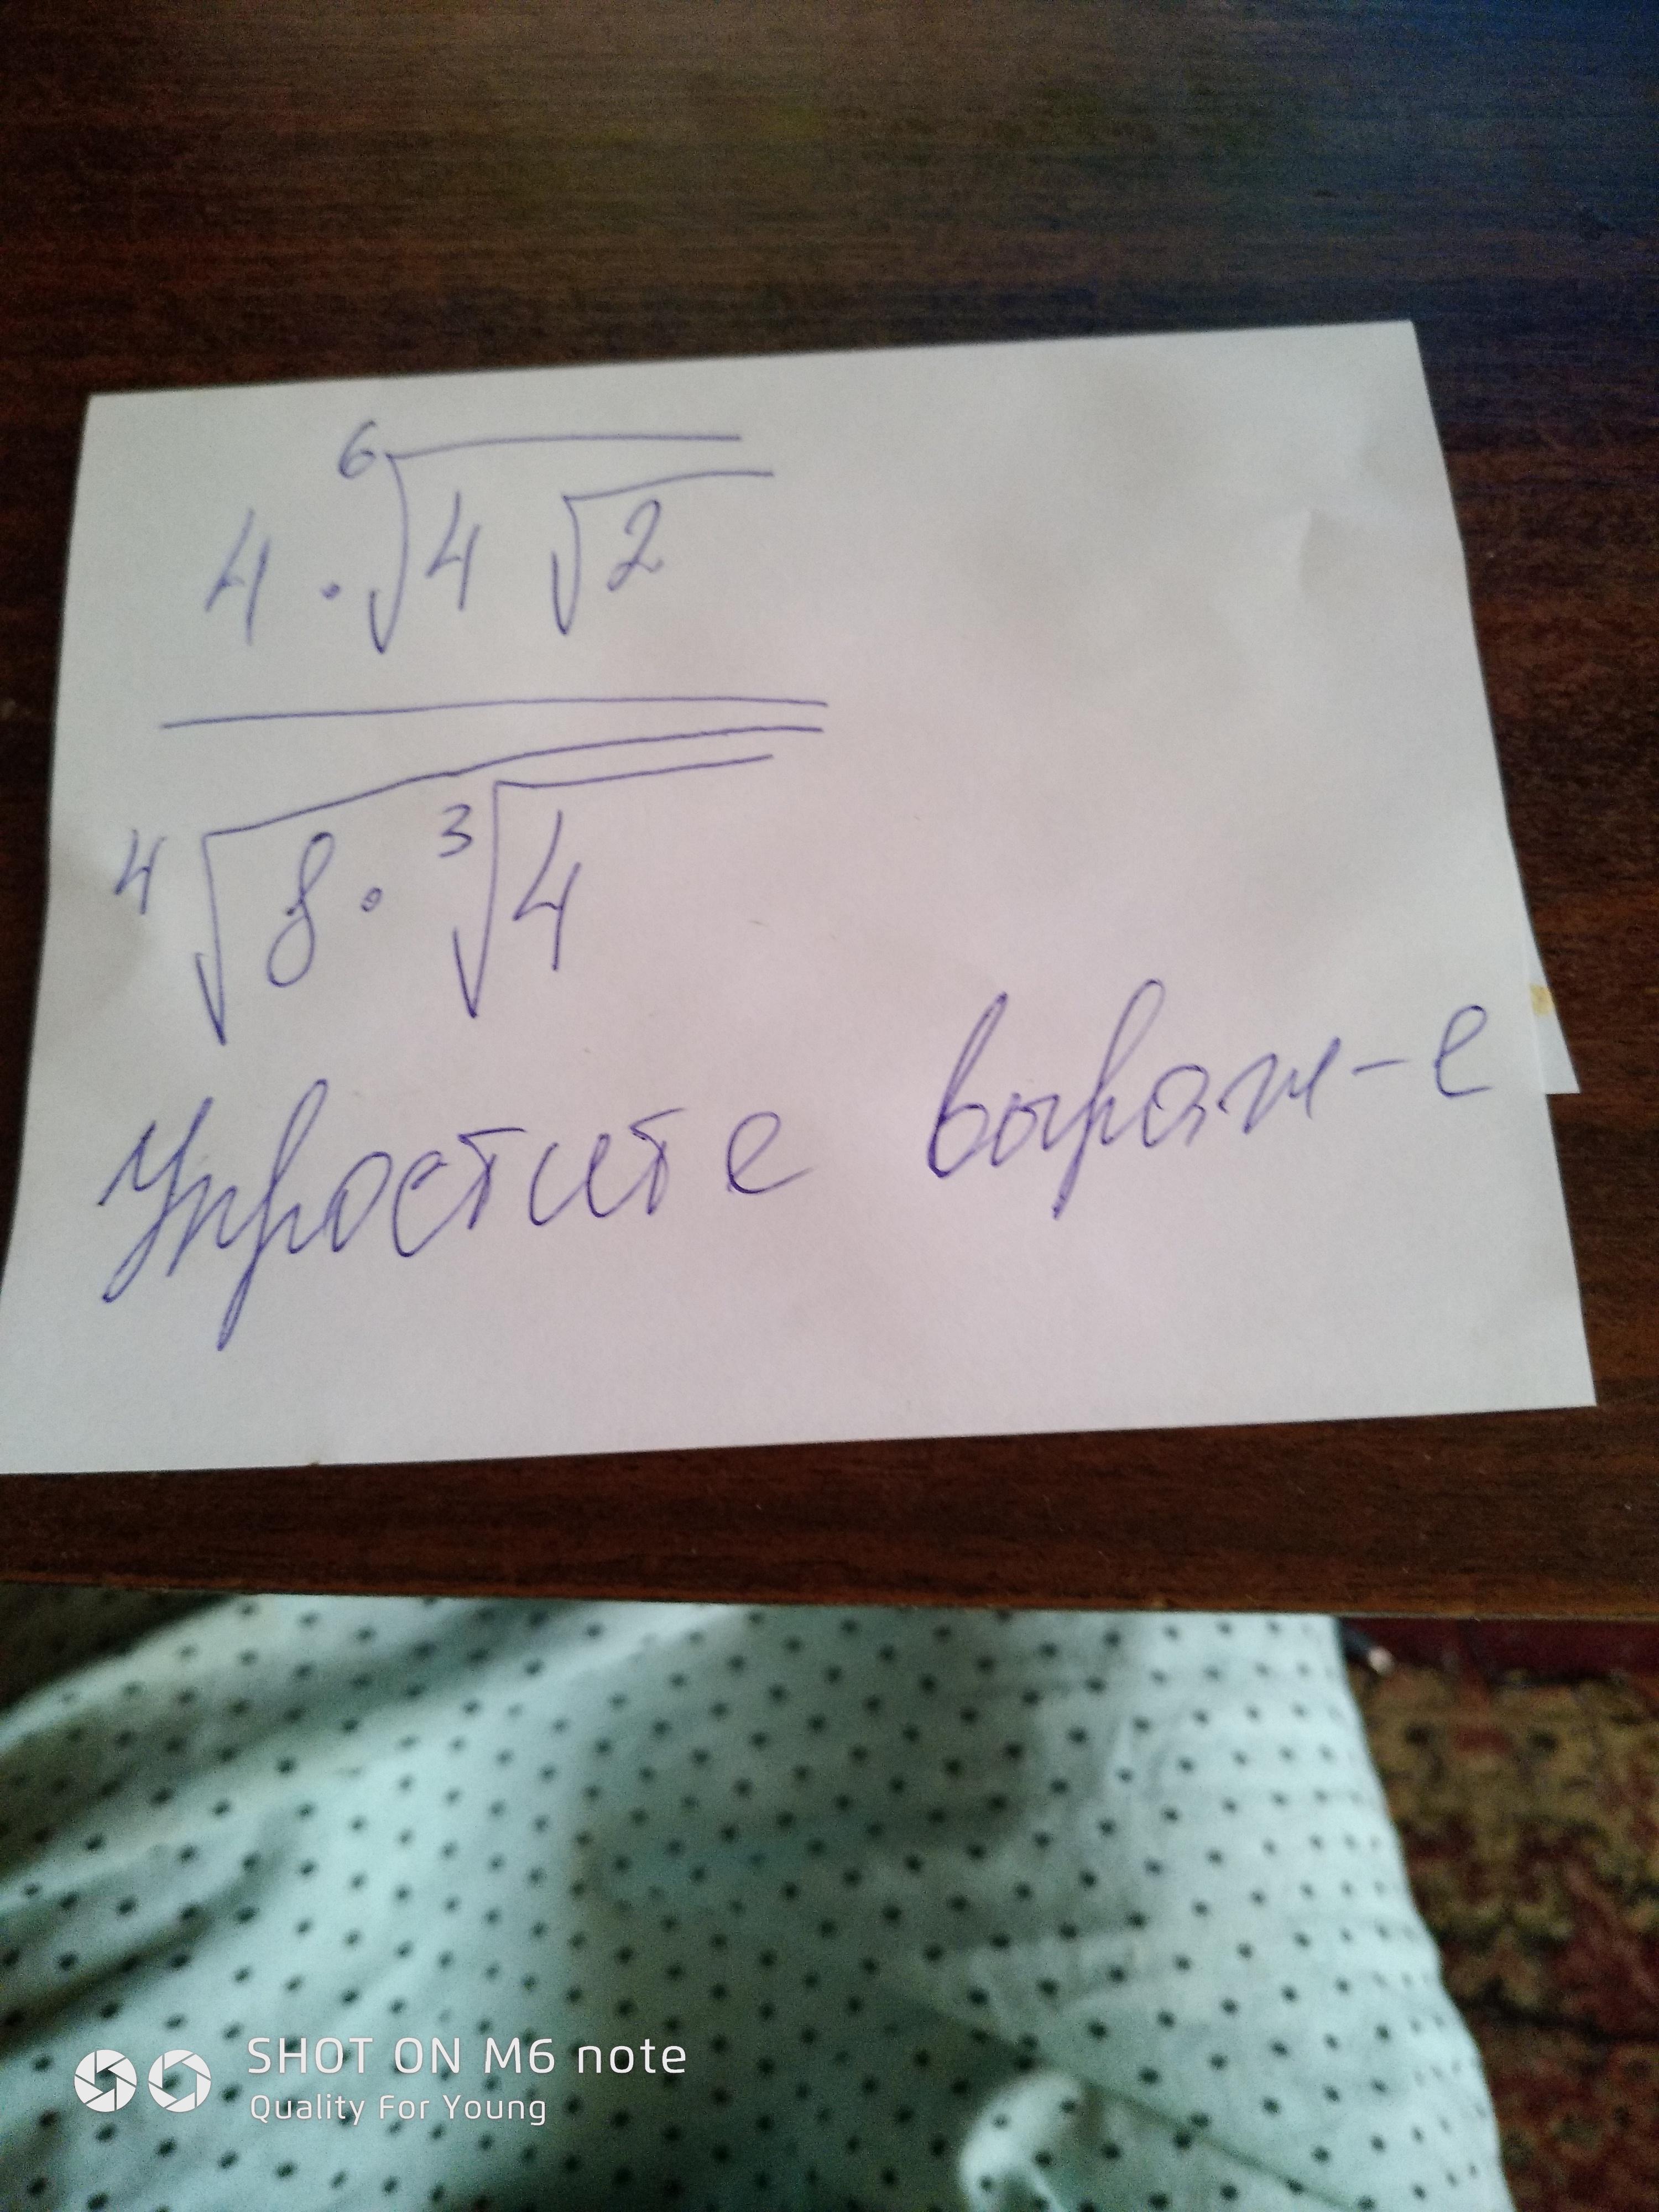 4 · ⁶√(4 √2)
⁴√(8 · ³√4)
Упростите выраж-е
SHOT ON M6 note
Quality For Young